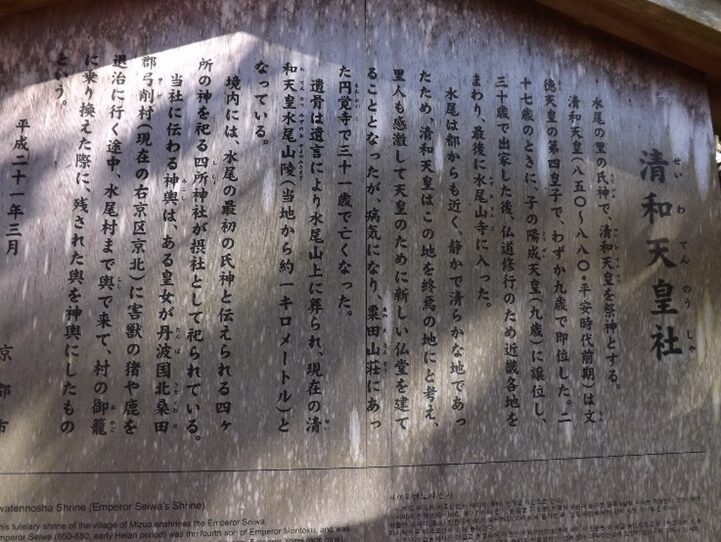 清和天皇社
せいわてんのうしゃ
水尾の里の氏神で、清和天皇を祭神とする。
清和天皇(八五〇~八八〇・平安時代前期)は文
徳天皇の第四皇子で、わずか九歳で即位した。二
十七歳のときに、子の陽成天皇(九歳)に譲位し、
三十歳で出家した後、仏道修行のため近畿各地を
まわり、最後に水尾山寺に入った。
水尾は都からも近く、静かで清らかな地であっ
たため、清和天皇はこの地を終焉の地にと考え、
里人も感激して天皇のために新しい仏堂を建て
ることとなったが、病気になり、粟田山荘にあっ
た円覚寺で三十一歳で亡くなった。
遺骨は遺言により水尾山上に葬られ、現在の清
和天皇水尾山陵(当地から約一キロメートル)と
なっている。
境内には、水尾の最初の氏神と伝えられる四ヶ
所の神を祀る四所神社が摂社として祀られている。
当社に伝わる神輿は、ある皇女が丹波国北桑田
郡弓削村(現在の右京区京北)に害獣の猪や鹿を
退治に行く途中、水尾村まで輿で来て、村の御籠
に乗り換えた際に、残された輿を神輿にしたもの
という。
平成二十一年三月
京都市
watennosha Shrine (Emperor Seiwa's Shrine)
his tutelary shrine of the village of Mizuo enshrines the Emperor Seiwa.
mperor Seiwa (850-880, early Heian period) was the fourth son of Emperor Montoku, and was
세이와텐노샤 신사